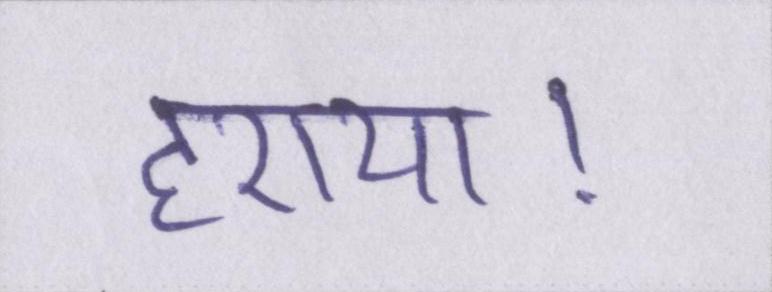 हराया!